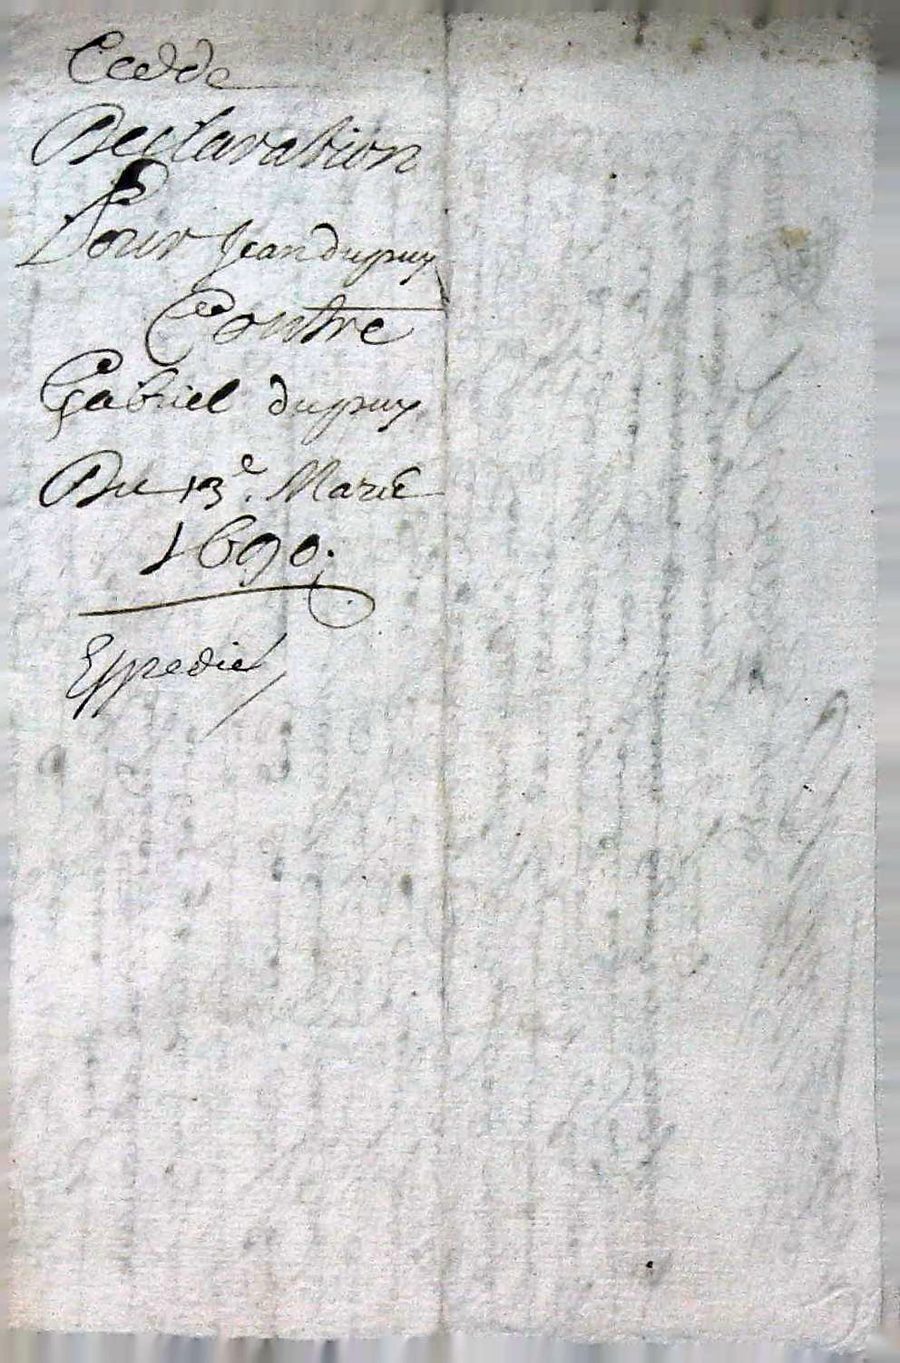 Cedde
Declaration
Pour Jean dupuy
Contre
Gabriel dupuy
Du 13e. Mars
1690.
Expedié